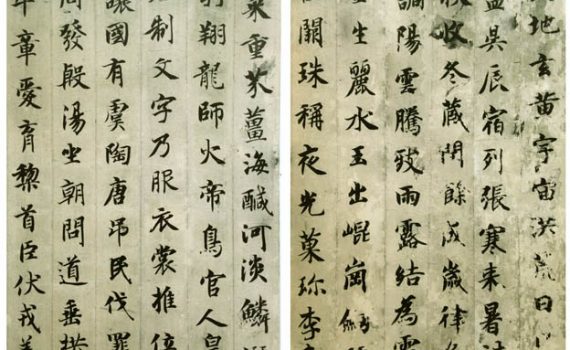 地玄黄宇宙洪荒日
盈昃辰宿列張寒来暑
收冬藏閏餘成歲律
調陽雲騰致雨露結為
生麗水玉出崐崗
闕珠稱夜光菓珍李
菜重芥薑海醎河淡鱗
羽翔龍師火帝鳥官人皇
制文字乃服衣裳推位
讓國有虞陶唐弔民伐罪
周發殷湯坐朝問道垂拱
章愛育黎首臣伏戎羌